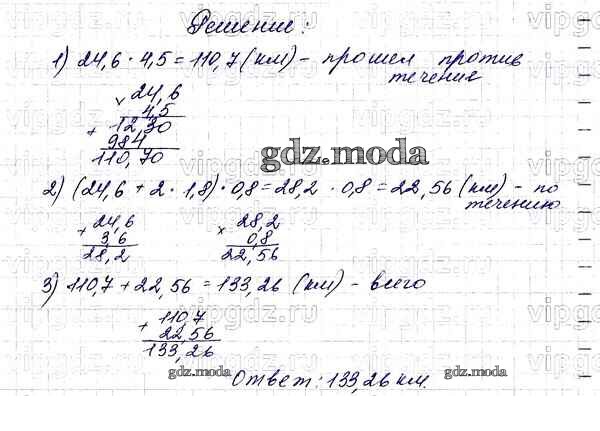 Решение:
1) 24,6 · 4,5 = 110,7 (км) - прошел против
течения
× 24,6
4,5
+ 1230
984
110,70
gdz.moda
2) (24,6 + 2 · 1,8) · 0,8 = 28,2 · 0,8 = 22,56 (км) - по
течению
+ 24,6
3,6
28,2
× 28,2
0,8
22,56
3) 110,7 + 22,56 = 133,26 (км) - всего
+ 110,7
22,56
133,26
gdz.moda
gdz.moda
Ответ: 133,26 км.